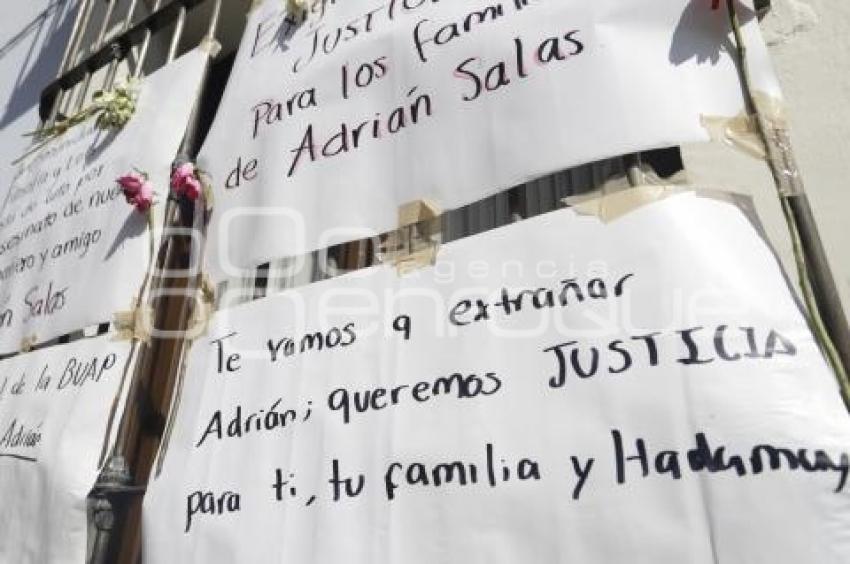 JUSTICIA
Para los
de Adrián Salas
de luto por
y amigo
Salas
de la BUAP
Adrián
agencia
enfoque
Te vamos a extrañar
Adrián; queremos JUSTICIA
para ti, tu familia y Hadamuy